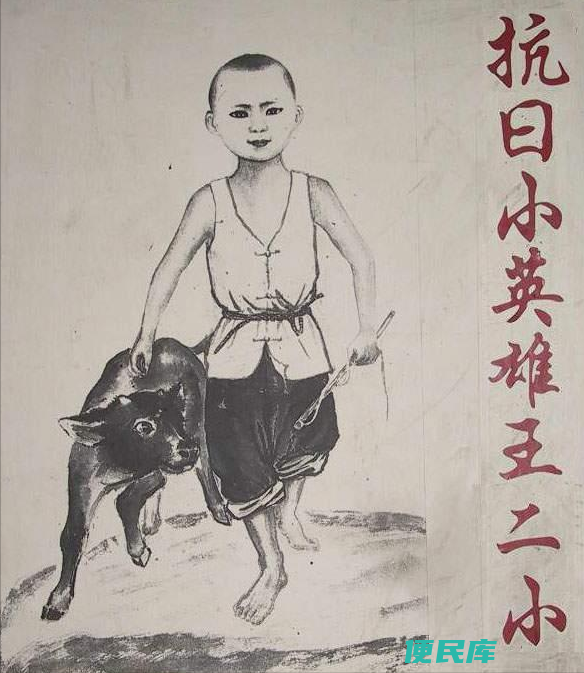 抗日小英雄王二小
便民库